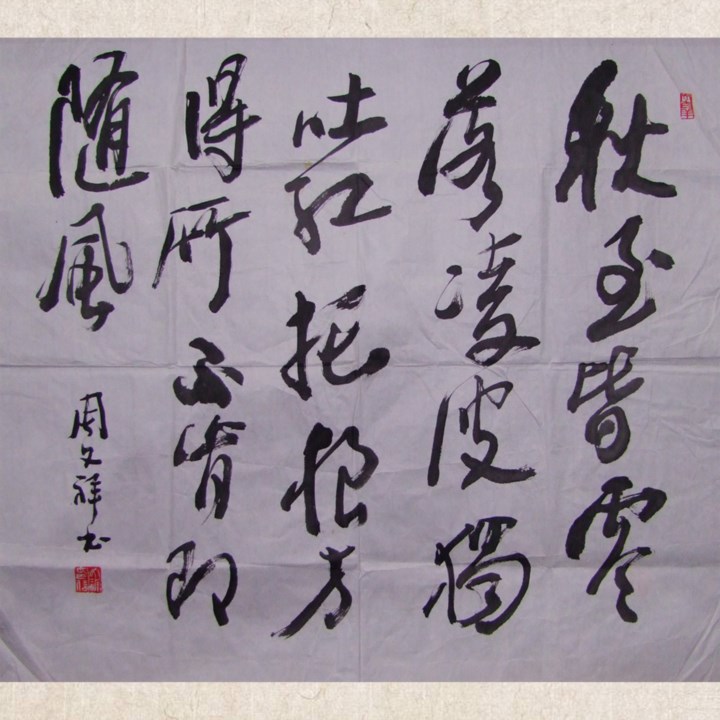 秋至皆零
落凌波獨
吐紅托根方
得所不肯即
隨風
周文祥书